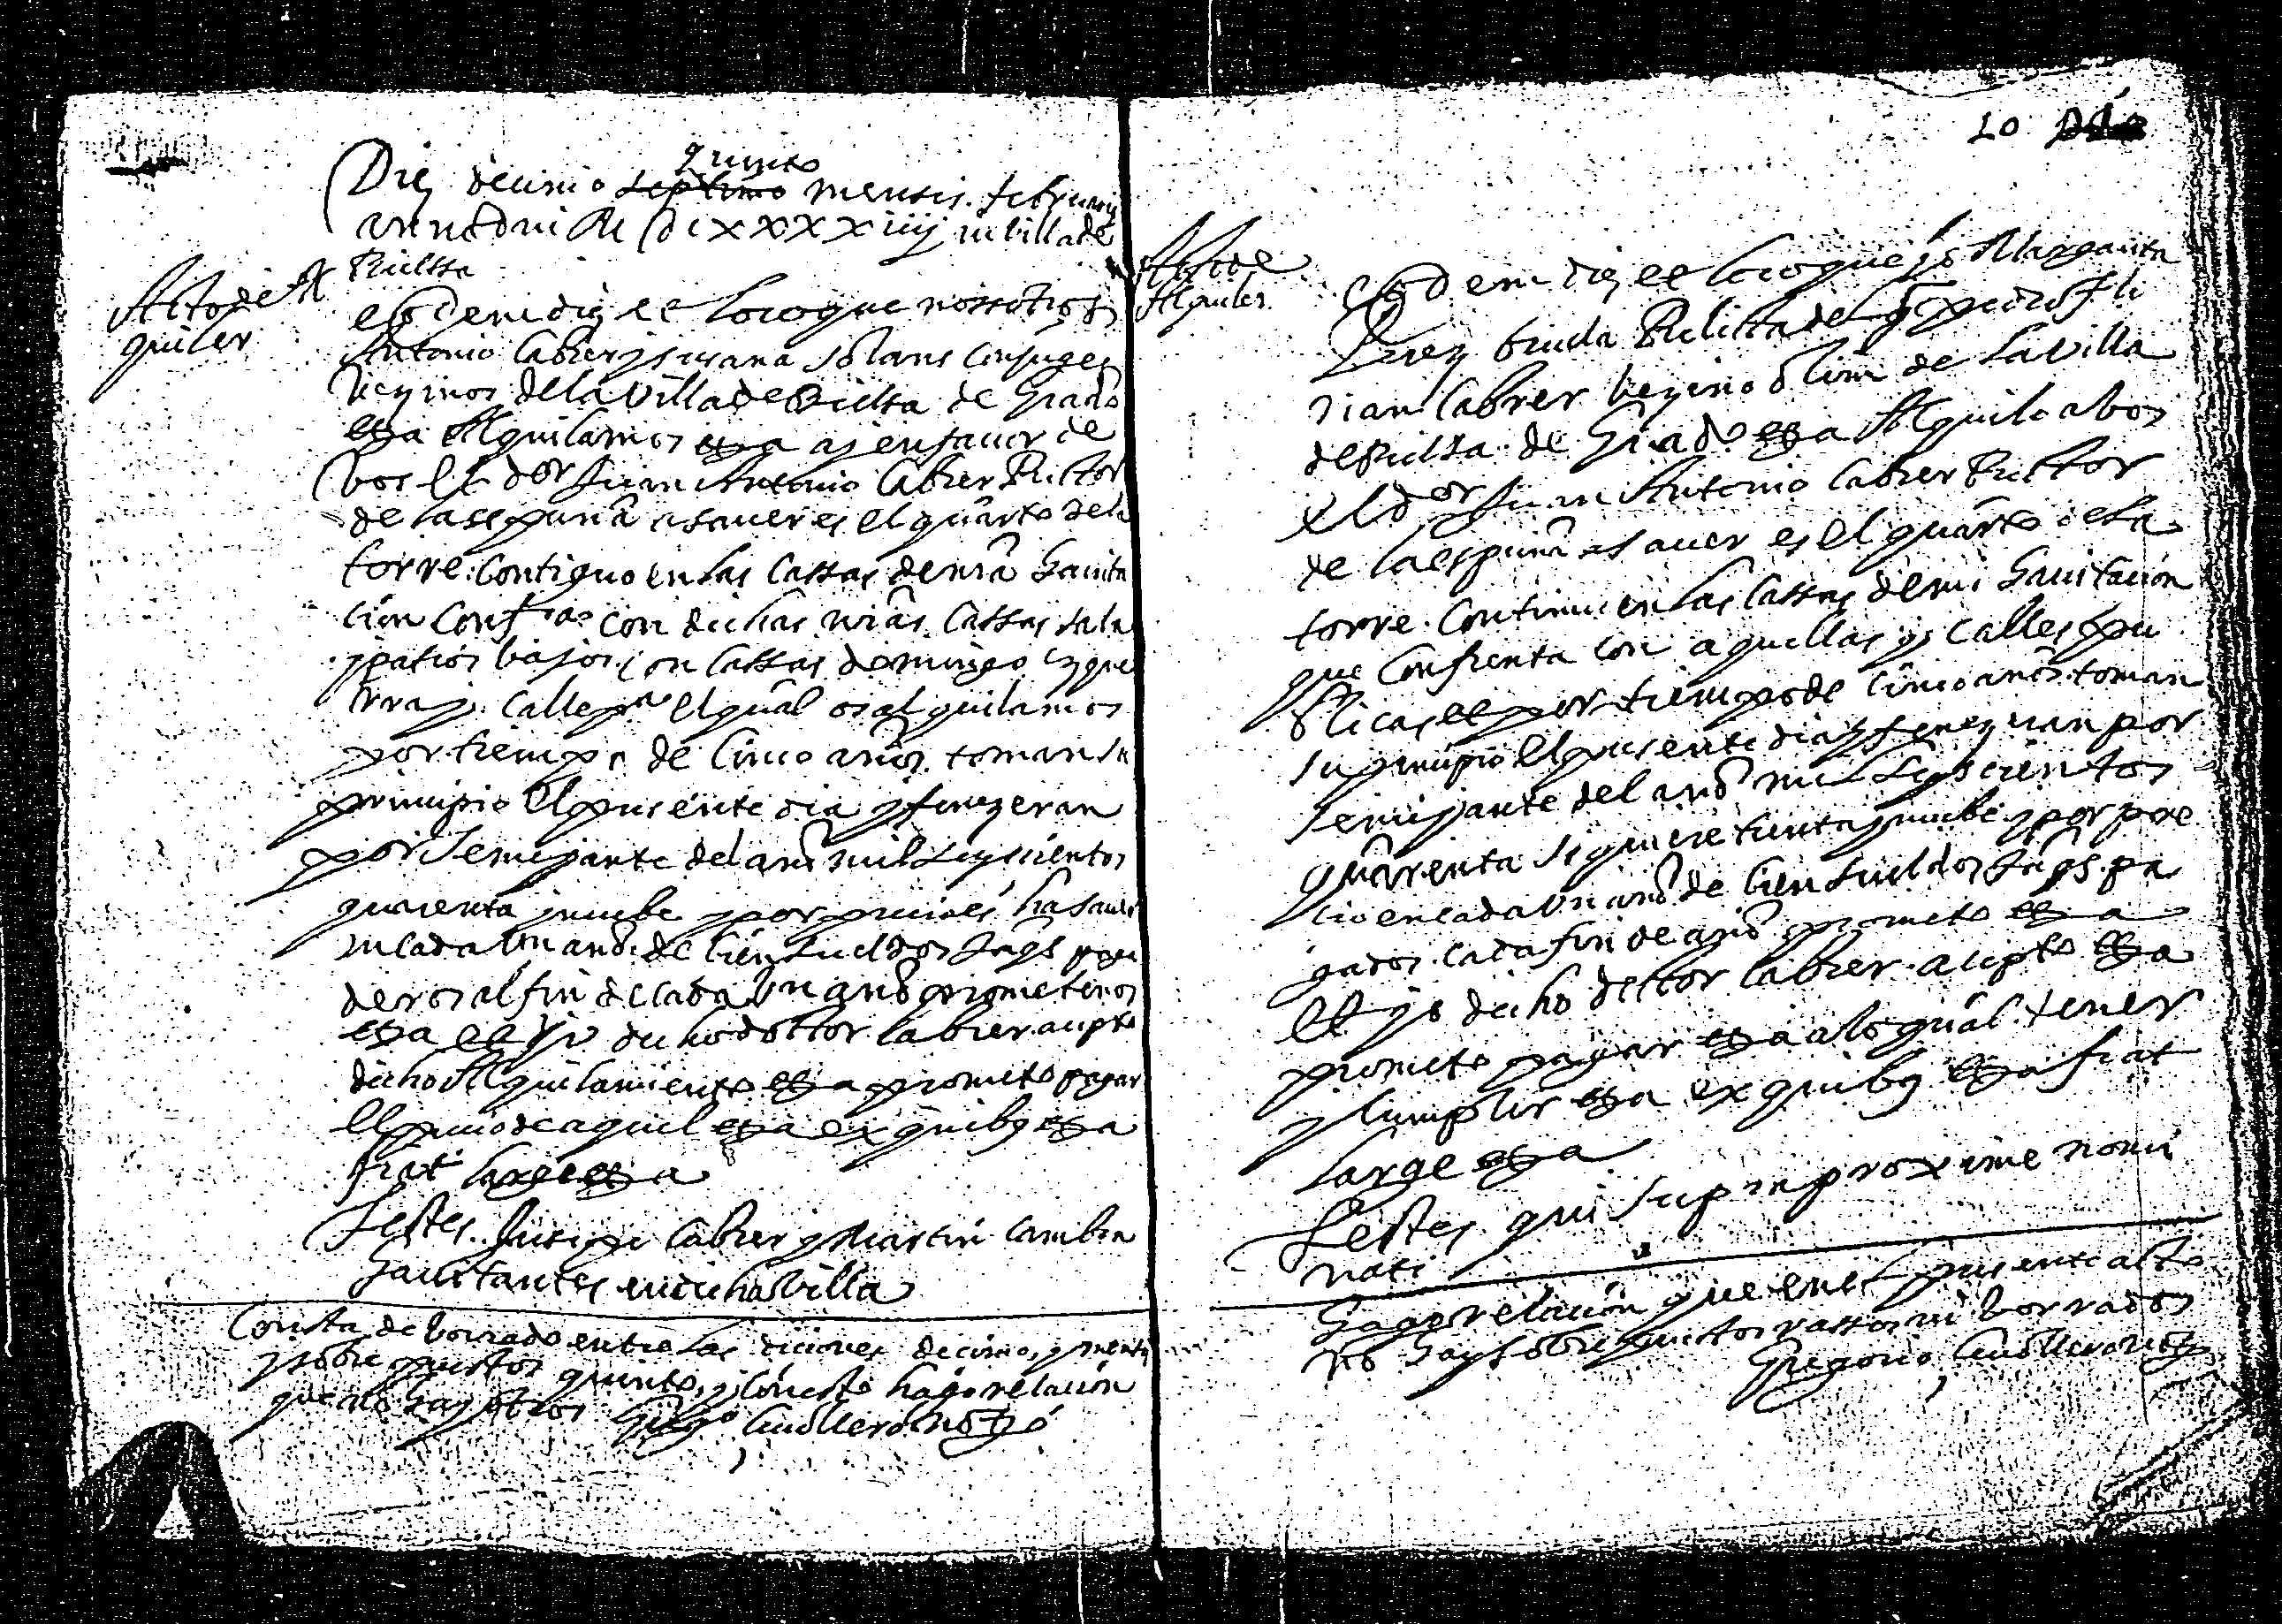 quinto
Die decimo septimo mensis februarij
anno Dni M DCXXXXiiij in villa de
Bielssa
Acto de Al
quiler
Eodem die et loco que nossotros
Antonio Cabrer y susana solans conjuges
vezinos de la villa de Bielsa de Grado
etta Alquilamos etta aj en fauor de
vos el dor Juan Antonio Cabrer Rector
de laspuña asauer es el quarto dela
torre contiguo en las cassas de nrã hauita
cion con dichas nrãs cassas sala
y patios bajos con cassas de mingo yzque
rra y calle pca el qual os alquilamos
por tiempo de cinco años toman su
principio el presente dia y fenezeran
por semejante del año mil seyscientos
quarenta y nuebe y por precio es hasauer
en cada un año de cien sueldos Jaqs paga
deros al fin de cada un año prometemos
etta et yo dicho dottor Cabrer acepto
dicho Alquilamiento etta prometo pagar
el precio de aquel etta ex quibus etta
fiat large etta
Testes Jusepe Cabrer y Martin Cambra
hauitantes en dicha villa
Consta de borrado entre las diciones decimo, y mensis
y sobre puestos quinto, y con esto hago relacion
que no hay otros Gregº Cuollero notº
10
Acto de
Alquiler
Eodem die et loco que yo Margarita
viuda Relicta de
Cabrer vezino olim de la villa
de Bielssa de Grado etta Alquilo a bos
el dor Juan Antonio Cabrer Rector
de laespuña asauer es el quarto de la
torre continuo en las cassas de mi hauitacion
que confrenta con aquellas y calles pu
blicas et por tiempo de cinco años toman
su principio el presente dia y fenezcan por
semejante del año mil seyscientos
quarenta y nuebe y por pre
cio en cada un año de cien sueldos Jaqs. pa
gados cada fin de año prometo etta
et yo dicho dottor Cabrer acepto etta
prometo pagar etta a lo qual tener
y cumplir etta ex quibus etta fiat
large etta
Testes qui supra proxime nomi
nati
Hago relacion que en el presente acto
no hay sobrepuestos rassos ni borrados
Gregorio Cuollero notº